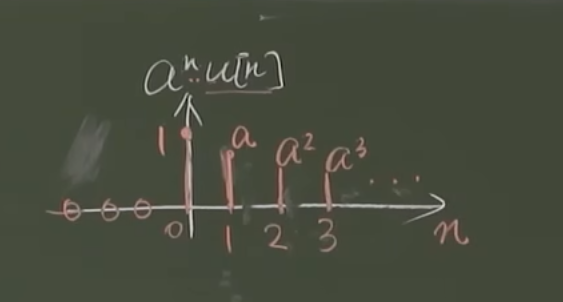 aⁿ u[n]
1 a a² a³ ...
0 1 2 3 n